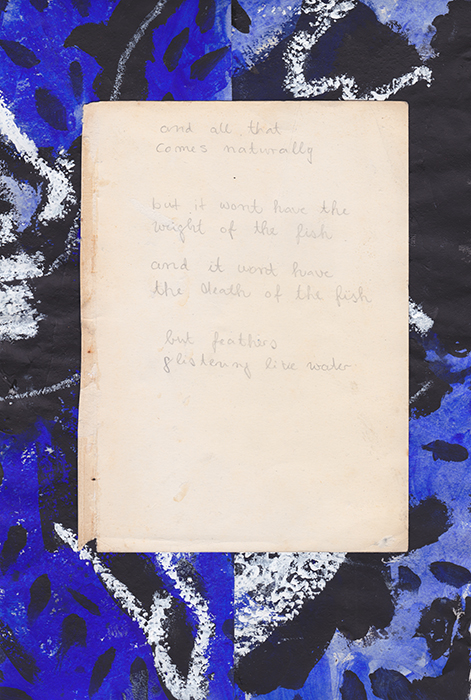 and all that
comes naturally
but it wont have the
weight of the fish
and it wont have
the death of the fish
but feathers
glistening like water